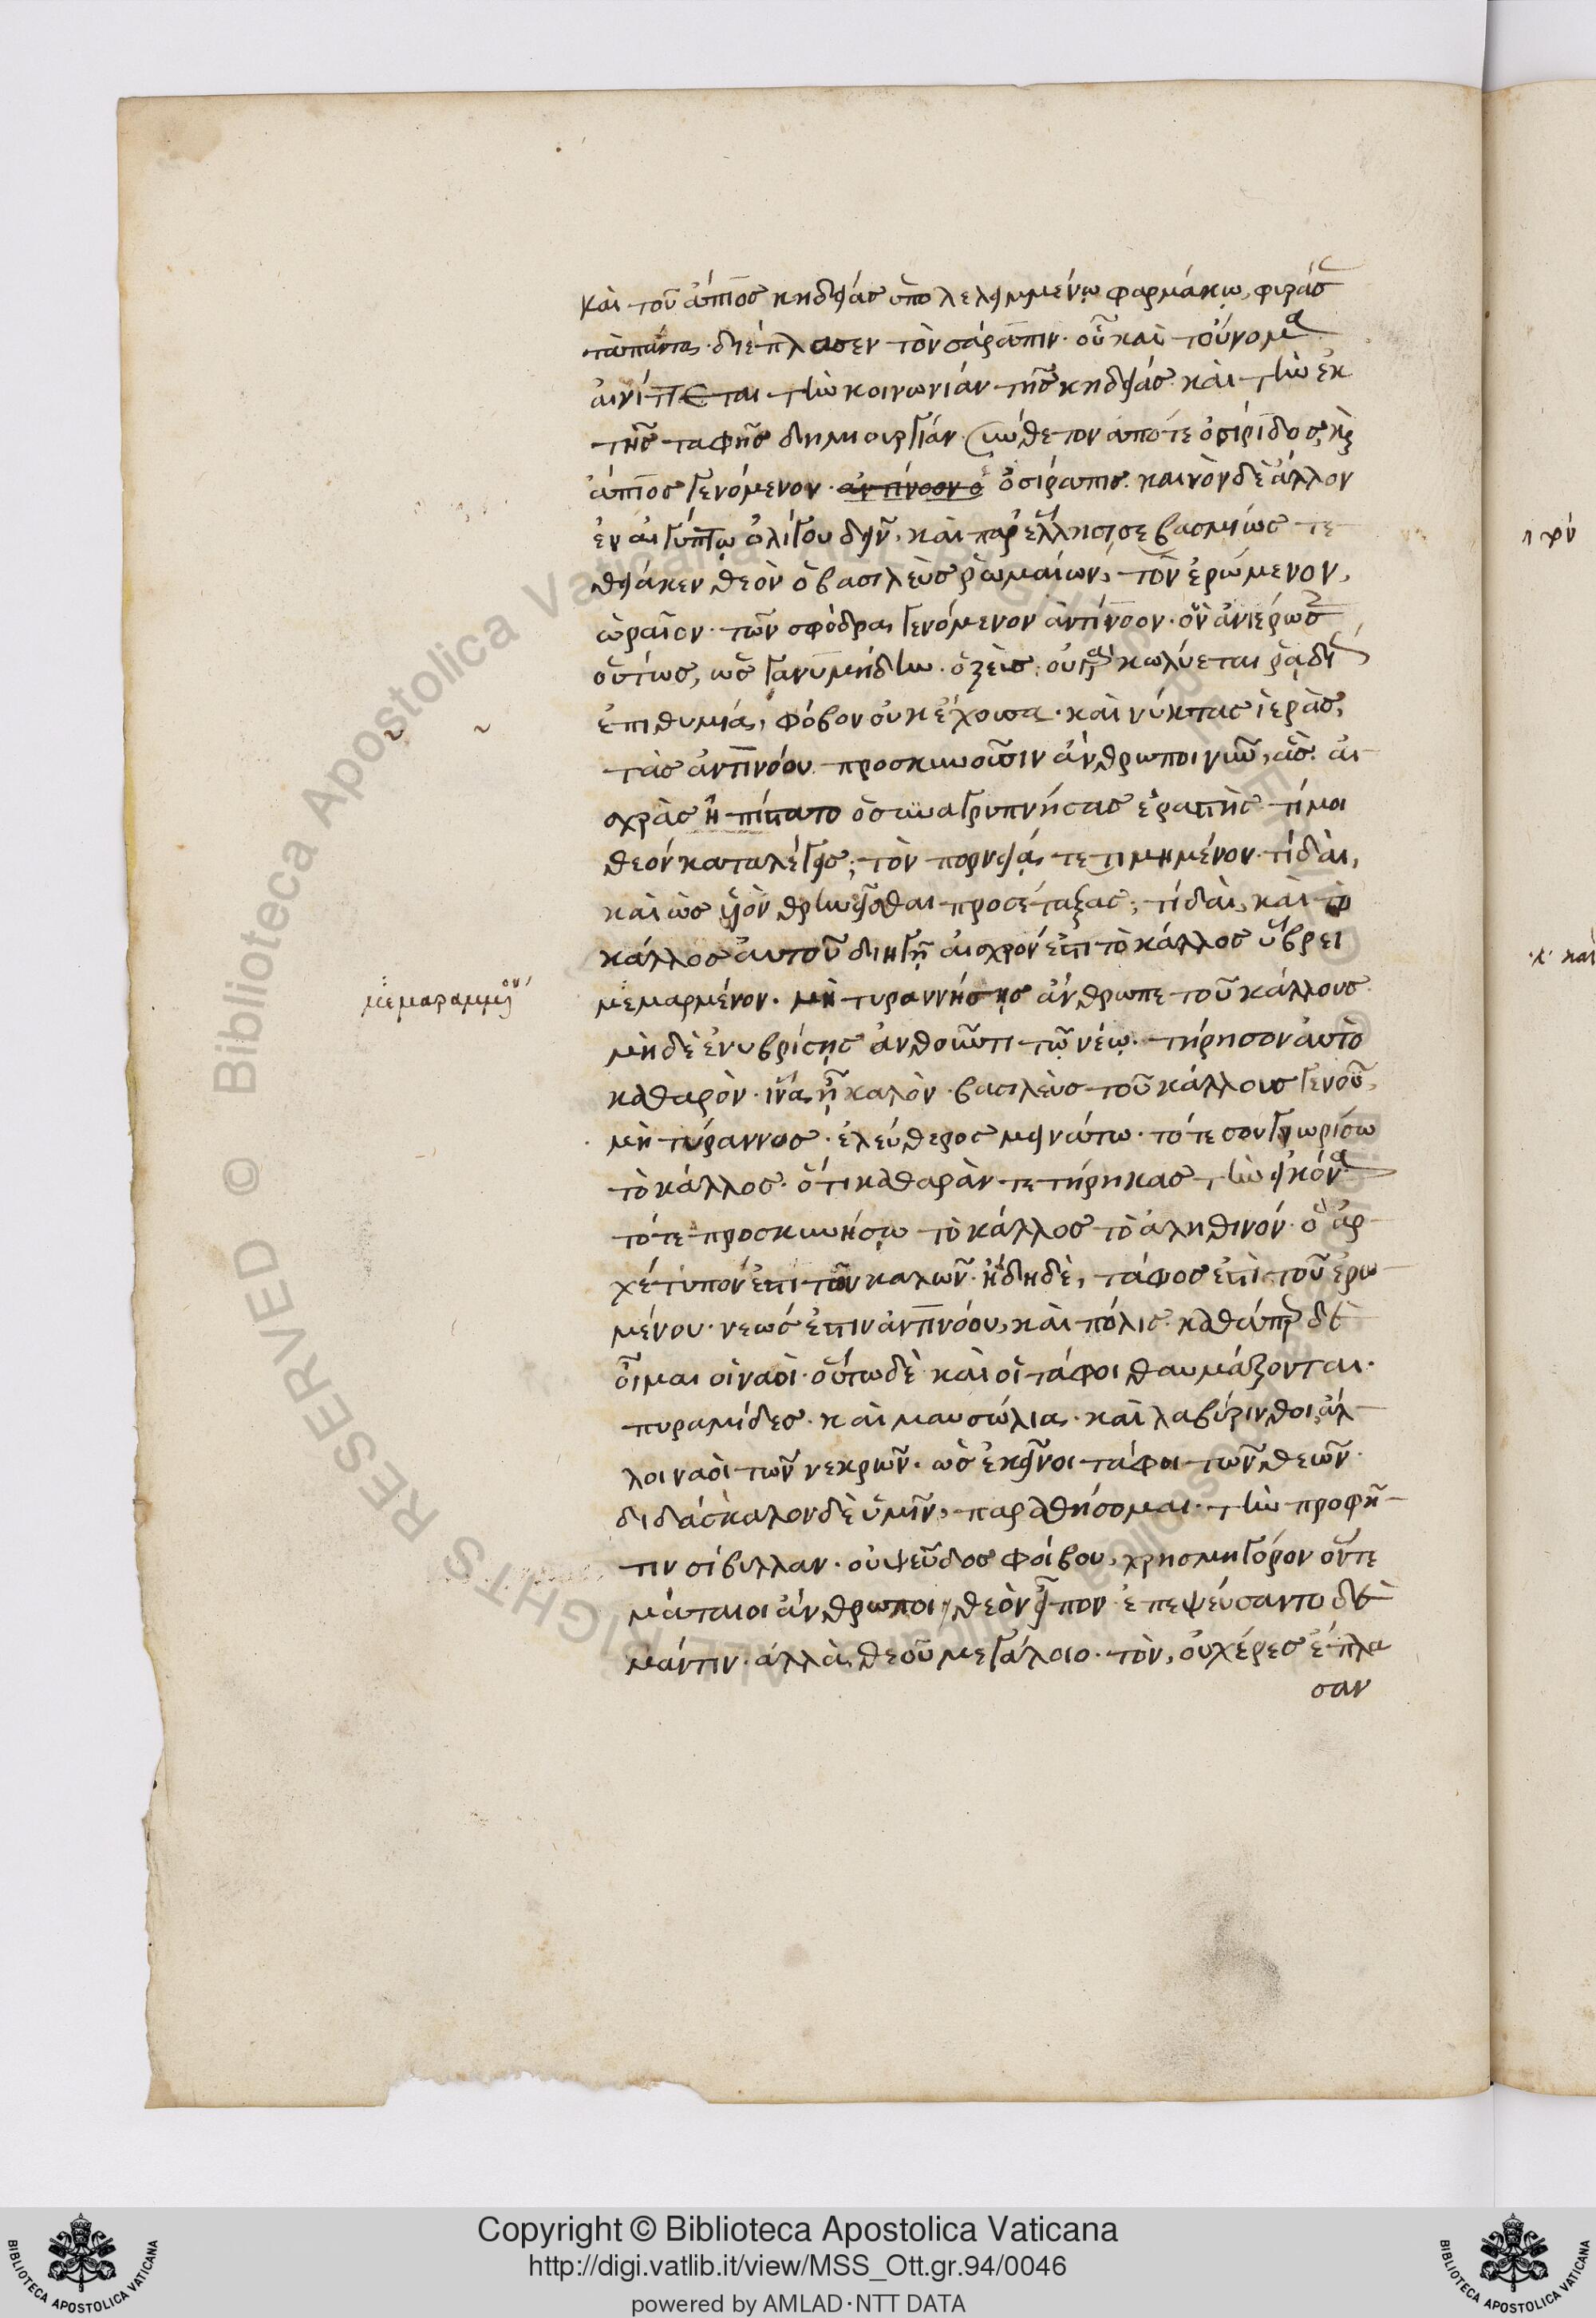 καὶ τοῦ ἄπιος κηδείας ὑπολελειμμένω φαρμάκω, φυράσ
τὰ πάντα· διέπλασεν τὸν σάραπιν· οὗ καὶ τοὔνομα
αἰνίττεται τὴν κοινωνίαν τῆς κηδείας· καὶ τὴν ἐκ
τῆς ταφῆς δημιουργίαν· σύνθετον ἀπό τε ὀσίριδος, καὶ
ἄπιος γενόμενον· ὀσίραπις. καινὸν δὲ ἄλλον
ἐν αἰγύπτω ὀλίγου δεῖν, καὶ παρ' ἕλλησι, σεβασμίως τε
θείακεν θεὸν ὁ βασιλεὺς ῥωμαίων, τὸν ἐρώμενον,
ὡραῖον· τῶν σφόδρα γενόμενον ἀντίνοον· ὃν ἀνιέρωσ
οὕτως, ὡς γανυμήδην ὁ ζεύς· οὐ γὰρ κωλύεται ῥαδί
ἐπιθυμία, φόβον οὐκ ἔχουσα· καὶ νύκτας ἱερὰς,
τὰς ἀντινόου προσκυνοῦσιν ἄνθρωποι νῦν, ἃς αἰ
σχρὰς ἠπίστατο ὁ συναγρυπνήσας ἐραστής· τί μοι
θεὸν καταλέγεις; τὸν πορνείᾳ τετιμημένον· τί δαὶ,
καὶ ὡς υἱὸν θρηνεῖσθαι προσέταξας; τί δαὶ, καὶ τὸ
κάλλος αὐτοῦ διηγῇ αἰσχρόν ἐστι τὸ κάλλος ὕβρει
μεμαρμένον· μὴ τυραννήσῃς ἄνθρωπε τοῦ κάλλους
μεμαραμμένον
μηδὲ ἐνυβρίσῃς ἀνθοῦντι τῷ νέῳ· τήρησον αὐτὸ
καθαρὸν· ἵνα ᾖ καλὸν· βασιλεὺς τοῦ κάλλους γενοῦ,
μὴ τύραννος· ἐλεύθερος μεινάτω· τότε σου γνωρίσω
τὸ κάλλος· ὅτι καθαρὰν τετήρηκας τὴν εἰκόνα
τότε προσκυνήσω τὸ κάλλος τὸ ἀληθινόν· ὃ ἀρ
χέτυπόν ἐστι τῶν καλῶν· ἤδη δὲ, τάφος ἐστὶ τοῦ ἐρω
μένου· νεώς ἐστιν ἀντινόου, καὶ πόλις· καθάπερ δὲ
οἶμαι οἱ ναοὶ· οὕτω δὲ καὶ οἱ τάφοι θαυμάζονται·
πυραμίδες· καὶ μαυσώλια· καὶ λαβύρινθοι, ἄλ
λοι ναοὶ τῶν νεκρῶν· ὡς ἐκεῖνοι τάφοι τῶν θεῶν·
διδάσκαλον δὲ ὑμῖν, παραθήσομαι· τὴν προφῆ
τιν σίβυλλαν· οὐ ψεῦδος φοίβου, χρησμηγόρον οὔτε
μάταιοι ἄνθρωποι, θεὸν εἶπον· ἐπεψεύσαντο δὲ
μάντιν· ἀλλὰ θεοῦ μεγάλοιο· τὸν, οὐ χέρες ἔπλα
σαν
Copyright © Biblioteca Apostolica Vaticana
http://digi.vatlib.it/view/MSS_Ott.gr.94/0046
powered by AMLAD·NTT DATA